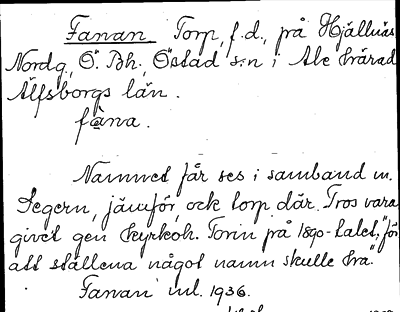 Fanan Torp, f.d., på Hjällnäs
Nordg, Ö. Bh, Östad s:n i Ale härad
Älfsborgs län.
fàna.
Namnet får ses i samband m.
Segern, jämför, ock torp där. Tros vara
givet gen kyrkoh. Torin på 1890-talet, "för
att ställena något namn skulle ha."
Fanan ml. 1936.